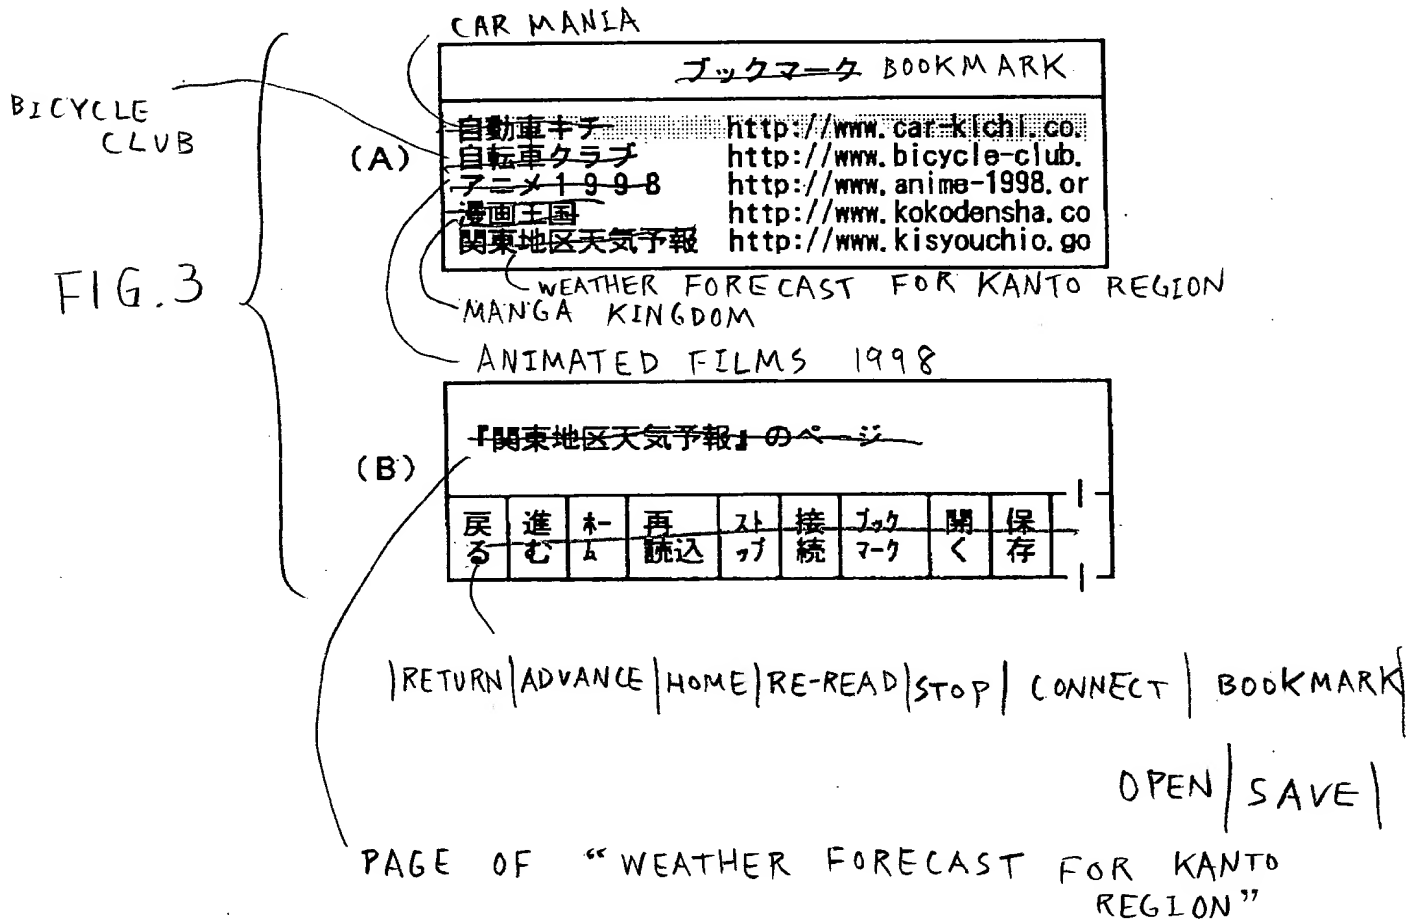 CAR MANIA
ブックマーク BOOKMARK
BICYCLE
CLUB
(A)
自動車キチ http://www.car-kichi.co.
自転車クラブ http://www.bicycle-club.
アニメ1998 http://www.anime-1998.or
漫画王国 http://www.kokodensha.co
関東地区天気予報 http://www.kisyouchio.go
FIG.3
WEATHER FORECAST FOR KANTO REGION
MANGA KINGDOM
ANIMATED FILMS 1998
(B)
『関東地区天気予報』のページ
戻る 進む ホーム 再読込 ストップ 接続 ブックマーク 開く 保存
|RETURN|ADVANCE|HOME|RE-READ|STOP| CONNECT | BOOKMARK|
OPEN|SAVE|
PAGE OF “WEATHER FORECAST FOR KANTO
REGION”